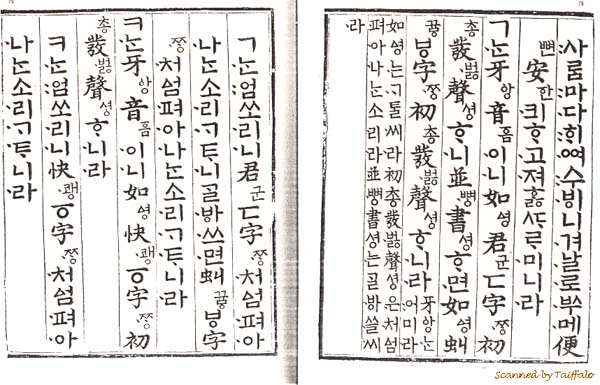 사ᄅᆞᆷ마다ᄒᆡᅇᅧ수ᄫᅵ니겨날로ᄡᅮ메便
뼌安ᅙᅡᆫ킈ᄒᆞ고져ᄒᆞᇙᄯᆞᄅᆞ미니라
ㄱᄂᆞᆫ牙ᅌᅡᆼ音ᅙᅳᆷ이니如ᅀᅧᆼ君군ㄷ字ᄍᆞᆼ初
총發벓聲셩ᄒᆞ니並뼝書셩ᄒᆞ면如ᅀᅧᆼ虯
뀨ᇢㅸ字ᄍᆞᆼ初총發벓聲셩ᄒᆞ니라 牙ᅌᅡᆼᄂᆞᆫ
어미라
如ᅀᅧᆼ는ᄀᆞᄐᆞᆯ씨라初총發벓聲셩은처ᅀᅥᆷ
펴아나ᄂᆞᆫ소리라並뼝書셩는ᄀᆞᆯᄫᅡ쓸씨
라
ㄱᄂᆞᆫ엄쏘리니君군ㄷ字ᄍᆞᆼ처ᅀᅥᆷ펴아
나ᄂᆞᆫ소리ᄀᆞᄐᆞ니ᄀᆞᆯᄫᅡ쓰면虯뀨ᇢㅸ字
ᄍᆞᆼ처ᅀᅥᆷ펴아나ᄂᆞᆫ소리ᄀᆞᄐᆞ니라
ㅋᄂᆞᆫ牙ᅌᅡᆼ音ᅙᅳᆷ이니如ᅀᅧᆼ快쾡ㆆ字ᄍᆞᆼ初
총發벓聲셩ᄒᆞ니라
ㅋᄂᆞᆫ엄쏘리니快쾡ㆆ字ᄍᆞᆼ처ᅀᅥᆷ펴아
나ᄂᆞᆫ소리ᄀᆞᄐᆞ니라
Scanned by Taiffalo